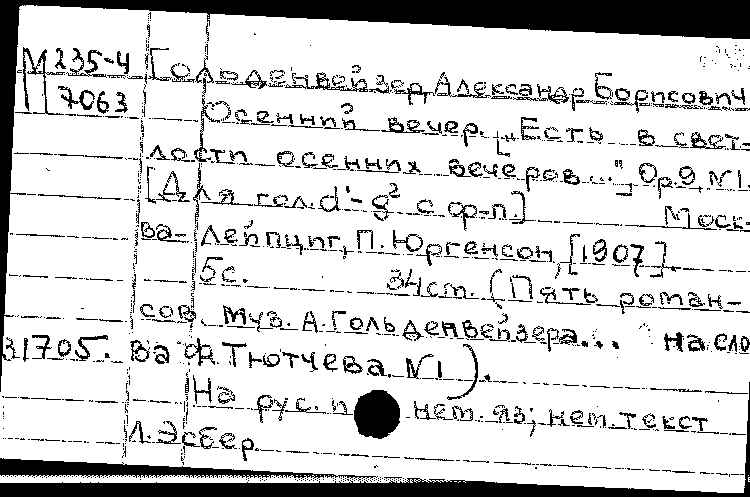 М 235-4 Гольденвейзер, Александр Борисович
7063 Осенний вечер. [„Есть в свет-
лости осенних вечеров..."], Op.9, №1.
[Для гол. d¹-g² с ф-п.] Моск-
ва-Лейпциг, П. Юргенсон, [1907].
5с. 34см. (Пять роман-
сов. муз. А. Гольденвейзера... на сло
31705. ва Ф. Тютчева. №1).
На рус. и нем. яз; нем. текст
Л. Эсбер.